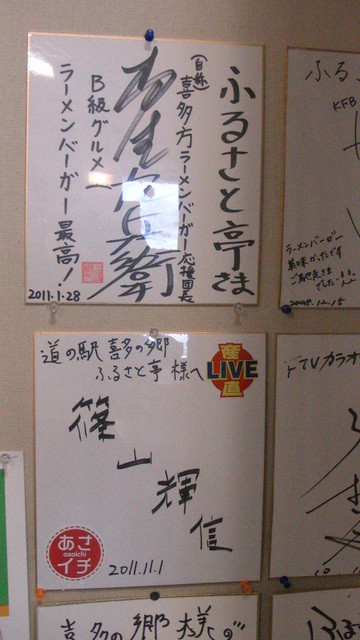 ふるさと亭さま
(自称)喜多方ラーメンバーガー応援団長
B級グルメ
ラーメンバーガー最高!
2011.1.28
道の駅 喜多の郷
ふるさと亭 様へ
産直
LIVE
篠山輝信
あさ
asaichi
イチ
2011.11.1
ふる
KFB
ラーメンバーガー
美味かったです
ごちそうさま
でした!!
2008.12.15
FTVカラオ
喜多の郷様の